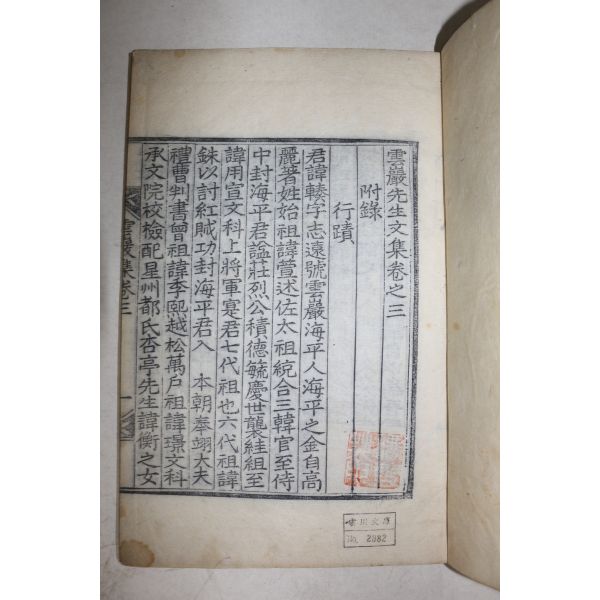 雲巖先生文集卷之三
附錄
行蹟
君諱轃字志遠號雲巖海平人海平之金自高
麗著姓始祖諱萱述佐太祖統合三韓官至侍
中封海平君謚莊烈公積德毓慶世襲絓組至
諱用宣文科上將軍寔君七代祖也六代祖諱
銖以討紅賊功封海平君入 本朝奉翊大夫
禮曹判書曾祖諱孝熙越松萬戶祖諱璟文科
承文院校檢配星州都氏杏亭先生諱衡之女
雲巖集卷三
一
文庫
No. 2982